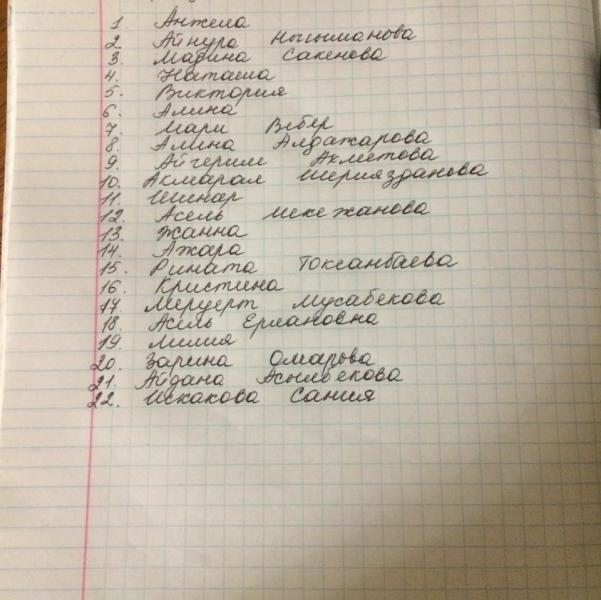 1. Анжела
2. Айнура Ныгыманова
3. Мадина Сакенова
4. Наташа
5. Виктория
6. Алина
7. Мари Вебер
8. Алина Алдажарова
9. Айгерим Ахметова
10. Акмарал Шериязданова
11. Шинар
12. Асель Шекежанова
13. Жанна
14. Ажара
15. Рината Токсанбаева
16. Кристина
17. Меруерт Мусабекова
18. Асель Ерлановна
19. Лилия
20. Зарина Омарова
21. Айдана Асылбекова
22. Искакова Сания